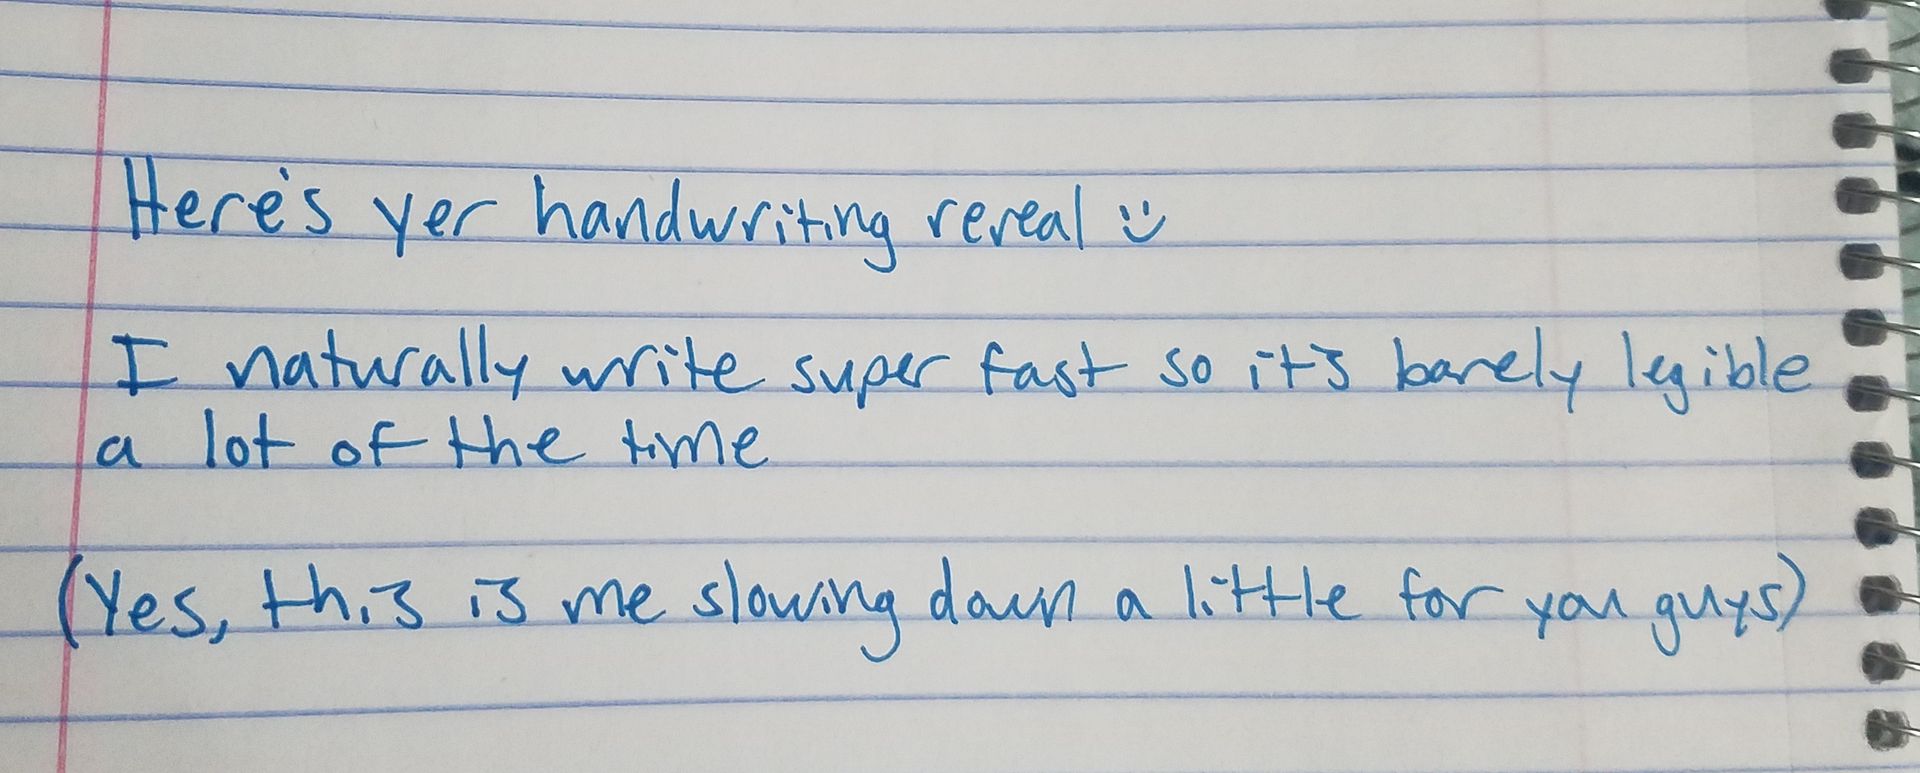 Here's yer handwriting reveal :)
I naturally write super fast so it's barely legible
a lot of the time
(Yes, this is me slowing down a little for you guys)